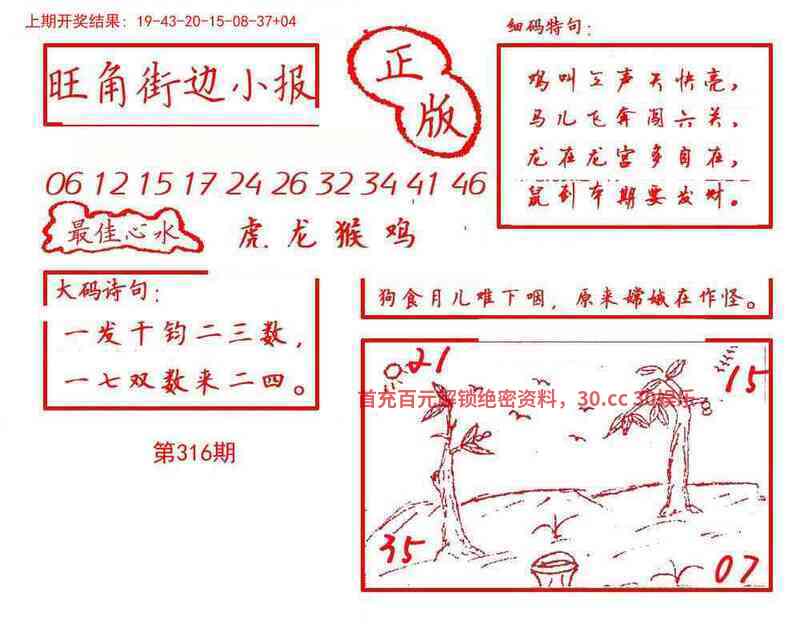 上期开奖结果: 19-43-20-15-08-37+04
细码特句:
旺角街边小报
正版
鸡叫三声天快亮,
马儿飞奔闯六关,
龙在龙宫多自在,
鼠到本期要发财。
06 12 15 17 24 26 32 34 41 46
最佳心水
虎龙猴鸡
大码诗句:
一发千钧二三数,
一七双数来二四。
狗食月儿难下咽, 原来嫦娥在作怪。
21
15
首充百元解锁绝密资料, 30.cc 30娱乐
第316期
35
07